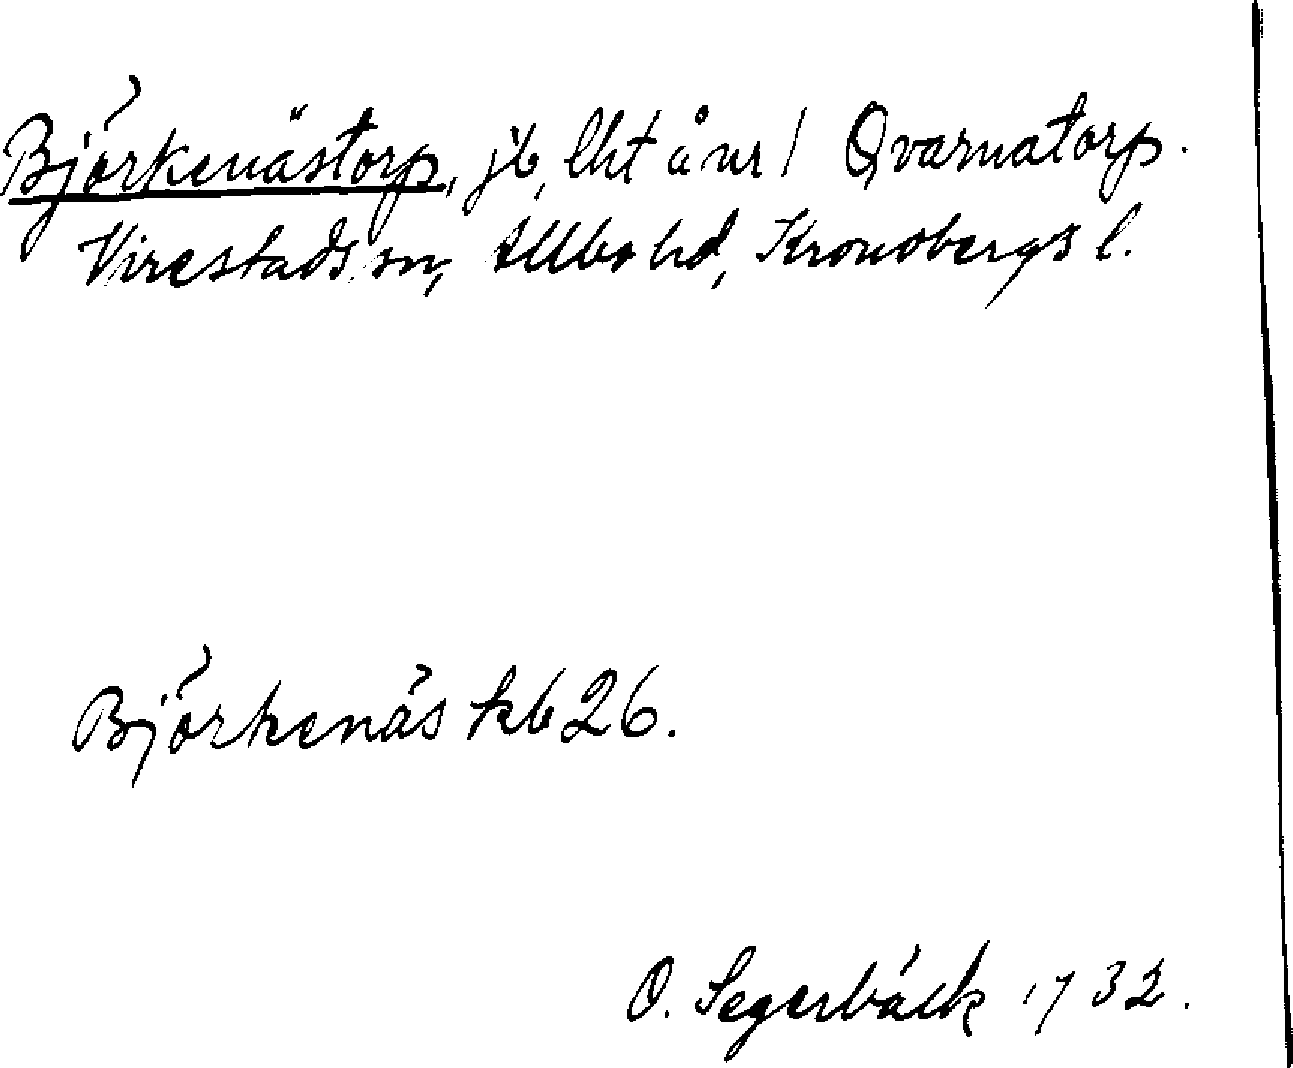 Björkenästorp, jb, lht å nr 1 Qvarnatorp.
Virestads sn, Allbo hd, Kronobergs l.
Björkenäs kb 26.
O. Segerbäck 1932.